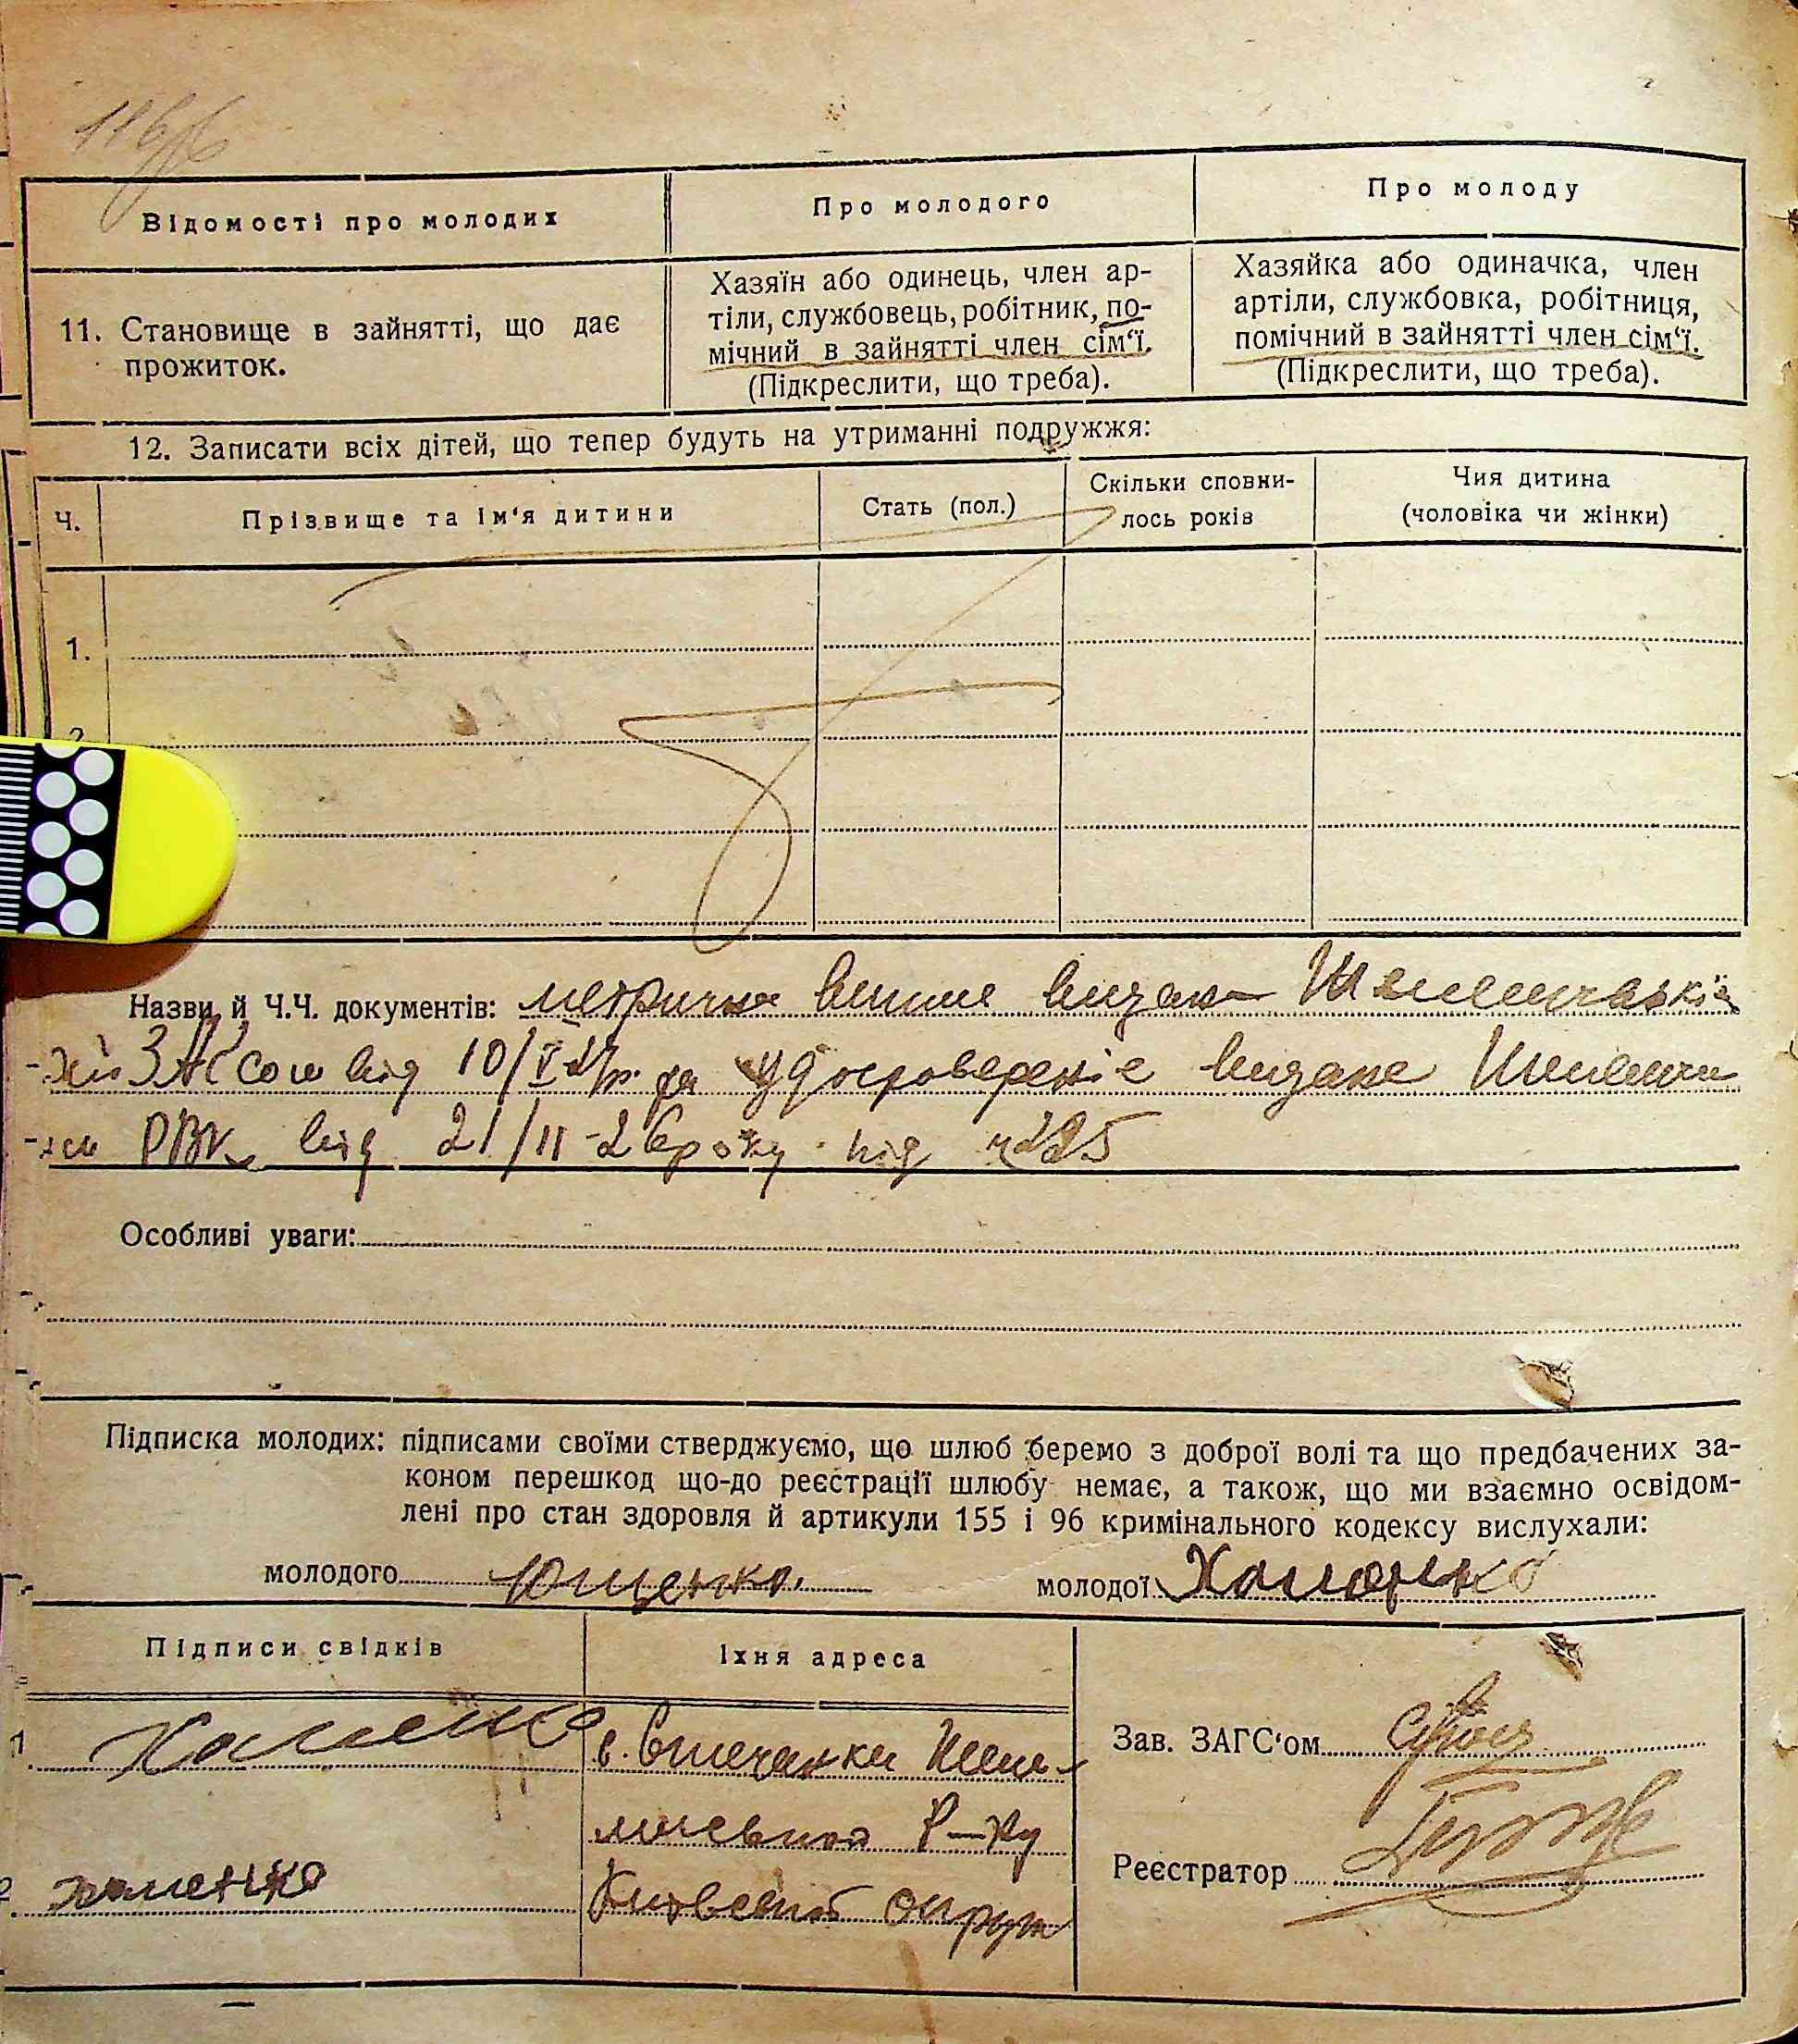 116
Відомості про молодих
Про молодого
Про молоду
11. Становище в зайнятті, що дає
прожиток.
Хазяїн або одинець, член ар-
тіли, службовець, робітник, по-
мічний в зайнятті член сім‘ї.
(Підкреслити, що треба).
Хазяйка або одиначка, член
артіли, службовка, робітниця,
помічний в зайнятті член сім‘ї.
(Підкреслити, що треба).
12. Записати всіх дітей, що тепер будуть на утриманні подружжя:
Ч.
Прізвище та ім‘я дитини
Стать (пол.)
Скільки сповни-
лось років
Чия дитина
(чоловіка чи жінки)
1.
2
Назви й Ч.Ч. документів: метрична видана
ЗАГСом від 10/V та удостоверение видане
РВК від 21/II-26 року під ч 225
Особливі уваги:
Підписка молодих: підписами своїми стверджуємо, що шлюб беремо з доброї волі та що предбачених за-
коном перешкод що-до реєстрації шлюбу немає, а також, що ми взаємно освідом-
лені про стан здоровля й артикули 155 і 96 кримінального кодексу вислухали:
молодого Ющенко.
молодої Хоменко
Підписи свідків
Їхня адреса
1 Хоменко
с.
Р-ну
Київської округи
2 Хоменко
Зав. ЗАГС‘ом
Реєстратор